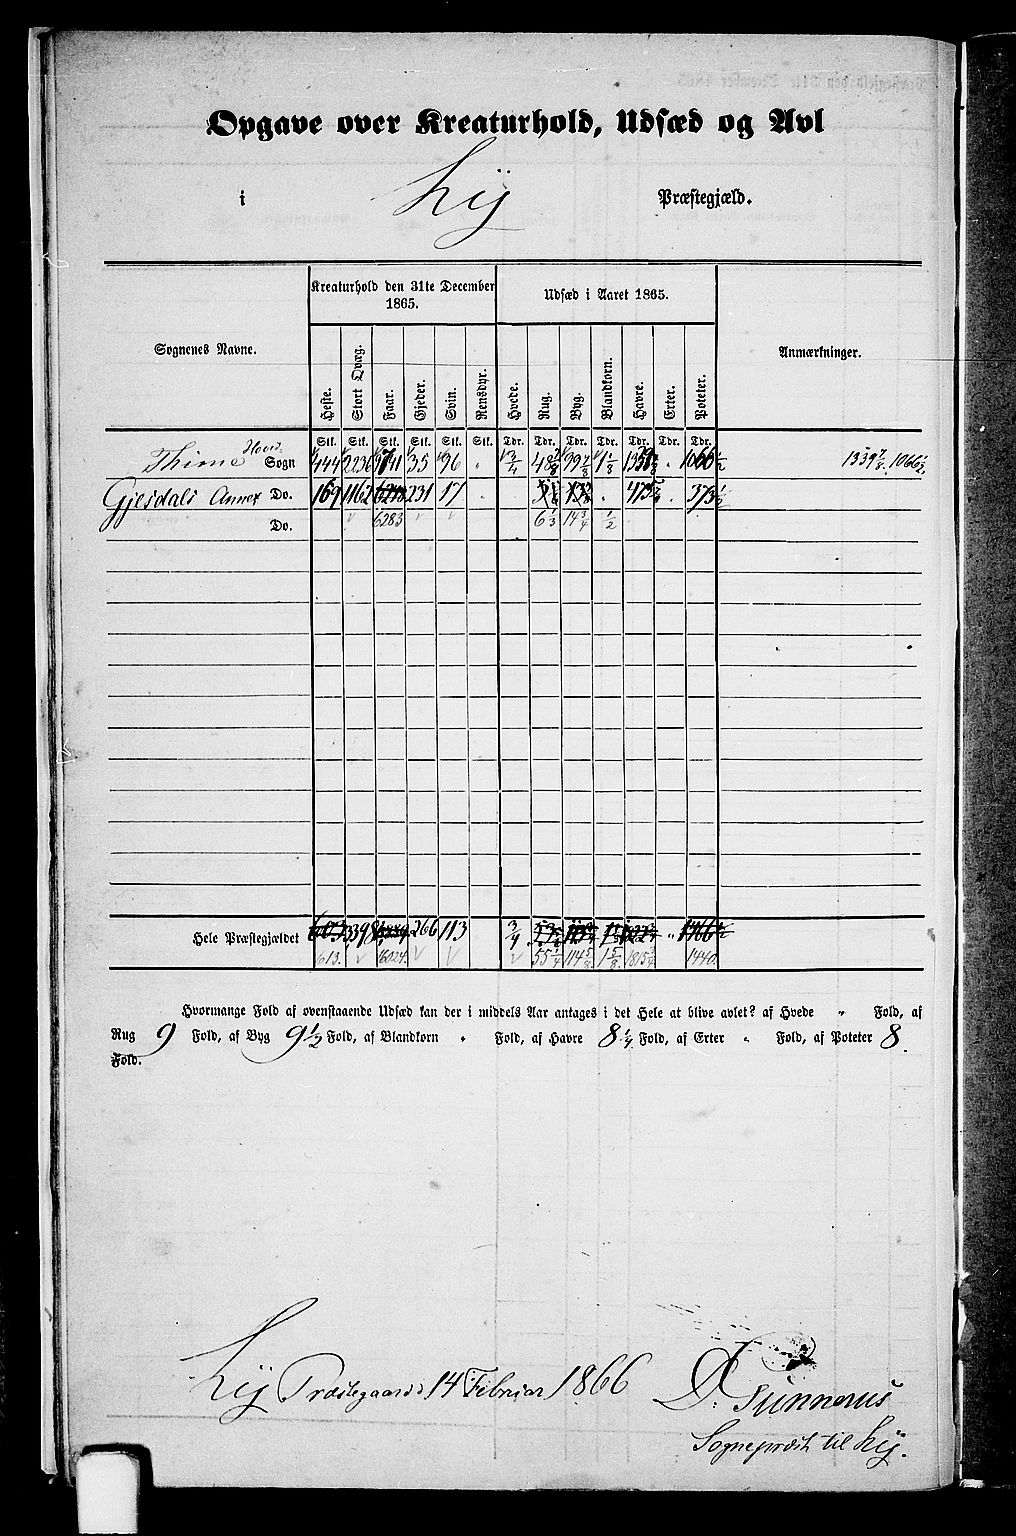 Opgave over Kreaturhold, Udsæd og Avl
i Lÿ Præstegjæld.
Sognenes Navne. Kreaturhold den 31te December 1865. Udsæd i Aaret 1865. Anmærkninger.
Heste. Stort Qvæg. Faar. Gjeder. Svin. Rensdyr. Hvede. Rug. Byg. Blandkorn. Havre. Erter. Poteter.
Stk. Stk. Stk. Stk. Stk. Stk. Tdr. Tdr. Tdr. Tdr. Tdr. Tdr. Tdr.
Thime Hoved Sogn 444 2236 9741 35 96 " 3/4 99 7/8 1 1/8 " 1066 1/2 1339 7/8 1066 1/2
Gjesdals Annex Do. 169 1162 231 17 " " " 373 1/2
Do. 6283 6 1/3 14 3/4 1/2
Hele Præstegjældet 3398 266 113 3/4 "
613. 16024. 55 1/4 114 5/8 1 5/8. 1815 1/4 1440
Hvormange Fold af ovenstaaende Udsæd kan der i middels Aar antages i det Hele at blive avlet? af Hvede " Fold, af
Rug 9 Fold, af Byg 9 1/2 Fold, af Blandkorn " Fold, af Havre 8 1/4 Fold, af Erter " Fold, af Poteter 8
Fold.
Lÿ Præstegaard 14 Februar 1866
D. Gunnerus
Sognepræst til Lÿ.